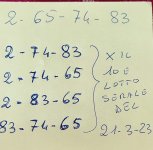 2-65-74-83
2-74-83
2-74-65
2-83-65
83-74-65
X IL
10 E
LOTTO
SERALE
DEL
21-3-23